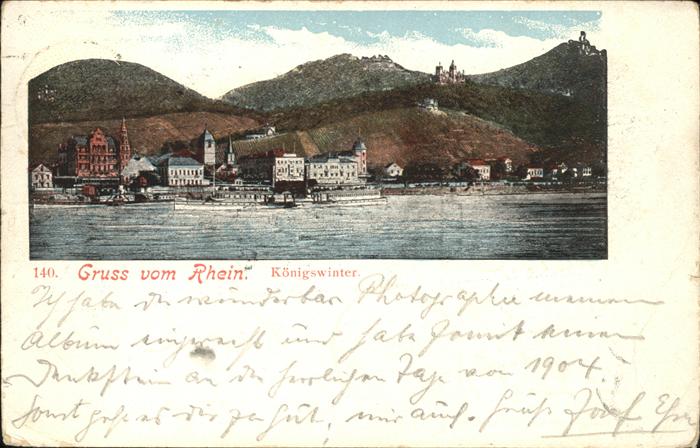 140. Gruss vom Rhein. Königswinter.
Ich habe die wunderbar Photographie meinem
Album eingereiht und habe somit einen
Denkstein an die herrlichen Tage von 1904.
Sonst geht es dir ja gut, mir auch. Gruß Josef